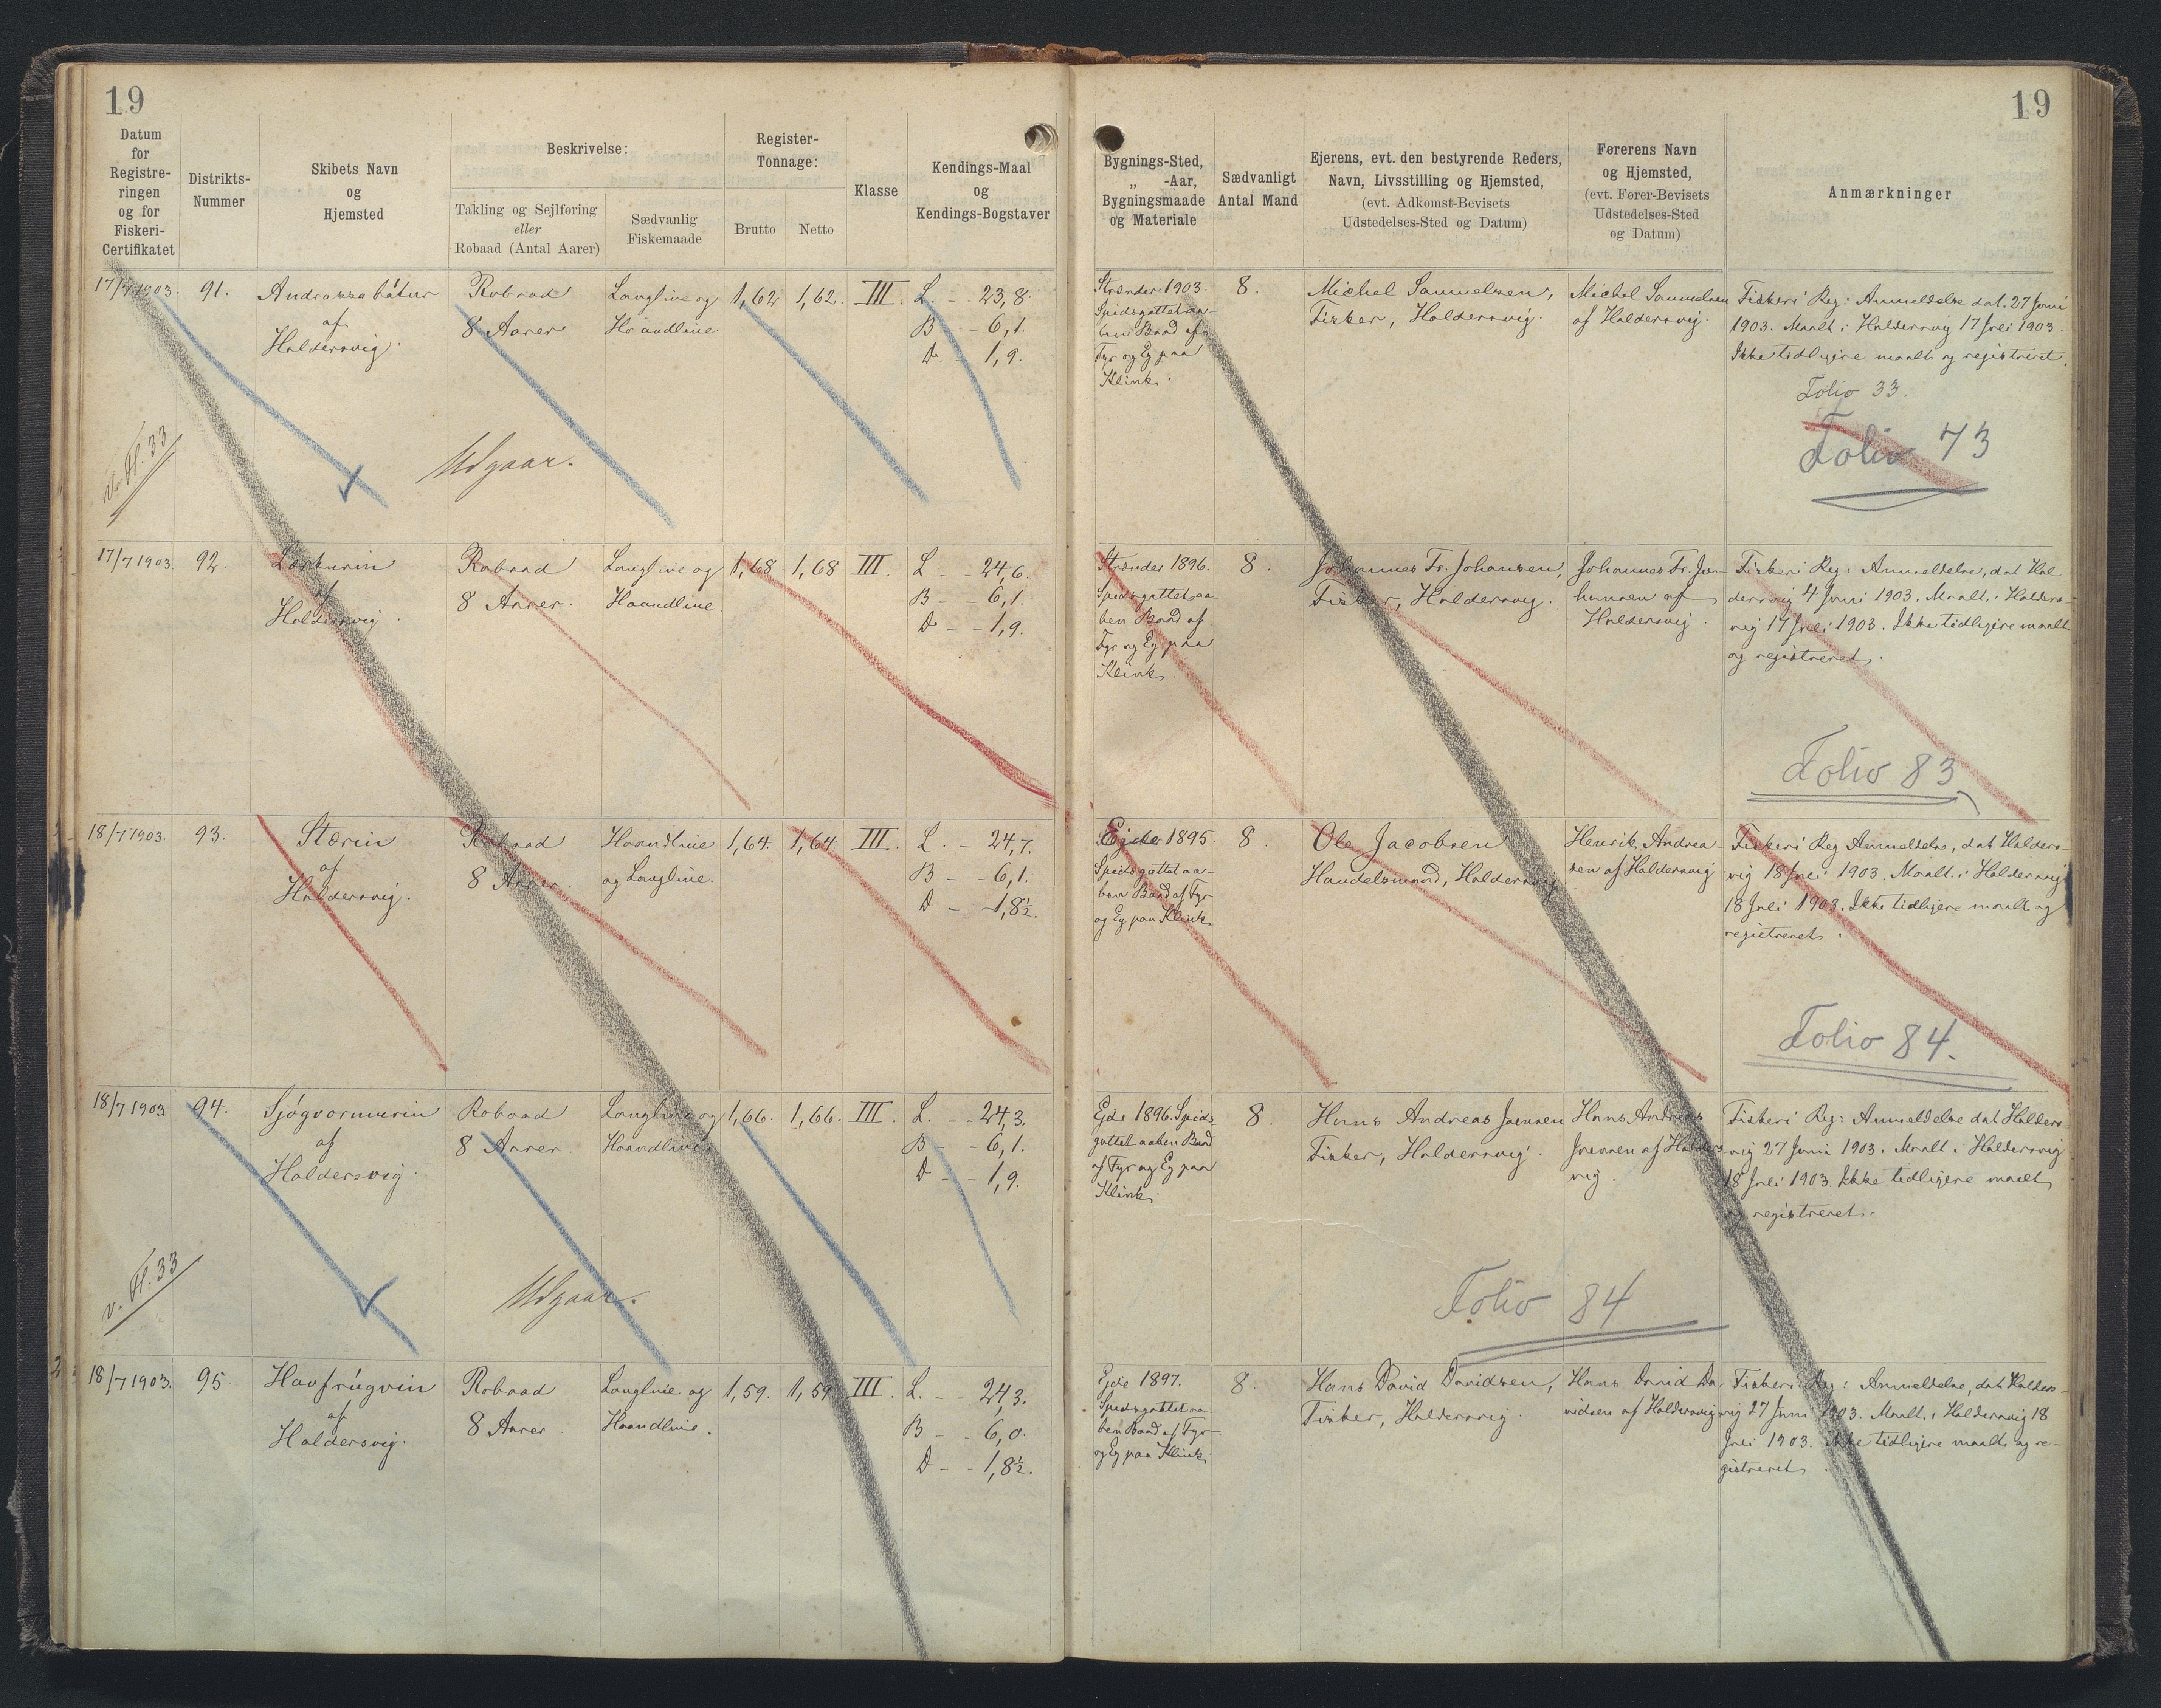 19
19
Datum
for
Registre-
ringen
og for
Fiskeri-
Certifikatet
Distrikts-
Nummer
Skibets Navn
og
Hjemsted
Beskrivelse:
Takling og Sejlføring
eller
Robaad (Antal Aarer)
Sædvanlig
Fiskemaade
Register-
Tonnage:
Brutto
Netto
Klasse
Kendings-Maal
og
Kendings-Bogstaver
Bygnings-Sted,
„ -Aar,
Bygningsmaade
og Materiale
Sædvanligt
Antal Mand
Ejerens, evt. den bestyrende Reders,
Navn, Livsstilling og Hjemsted,
(evt. Adkomst-Bevisets
Udstedelses-Sted og Datum)
Førerens Navn
og Hjemsted,
(evt. Fører-Bevisets
Udstedelses-Sted
og Datum)
Anmærkninger
17/7 1903.
91.
Andrassabátur
af
Haldersvig.
Robaad
8 Aarer
Langline og
Haandline
1,62
1,62.
III.
L. - 23,8.
B - 6,1.
D - 1,9.
Strænder 1903.
Spidsgattet aa-
ben Baad af
Fyr og Eg paa
Klink.
8.
Michel Samuelsen,
Fisker, Haldersvig.
Michel Samuelsen
af Haldersvig.
Fiskeri Reg: Anmeldelse dat. 27 Juni
1903. Maalt i Haldersvig 17 Juli 1903.
Ikke tidligere maalt og registreret.
Folio 33.
Folio 73
v. Fl. 33
Udgaar.
17/7 1903
92.
af
Haldersvig.
Robaad
8 Aarer.
Langline og
Haandline
1,68
1,68
III.
L - - 24,6.
B - - 6,1.
D - - 1,9.
Strænder 1896.
Spidsgattet aa-
ben Baad af
Fyr og Eg paa
Klink.
8.
Johannes Fr. Johansen,
Fisker, Haldersvig.
Johannes Fr. Jo-
hansen af
Haldersvig.
Fiskeri Reg: Anmeldelse, dat Hal
dersvig 4 Juni 1903. Maalt i Halders-
vig 17 Juli 1903. Ikke tidligere maalt
og registreret.
Folio 83
18/7 1903.
93.
Stærin
af
Haldersvig.
Robaad
8 Aarer.
Haandline
og Langline.
1,64.
1,64
III.
L. - 24,7.
B - - 6,1.
D - - 1,8½.
Ejde 1895.
Spidsgattet aa-
ben Baad af Fyr
og Eg paa Klink.
8.
Ole Jacobsen
Handelsmand, Haldersvig
Henrik Andrea-
sen af Haldersvig
Fiskeri Reg Anmeldelse, dat Halders-
vig 18 Juli 1903. Maalt i Haldersvig
18 Juli 1903. Ikke tidligere maalt og
registreret.
Folio 84.
18/7 1903
94.
Sjógvormurin
af
Haldersvig.
Robaad
8 Aarer.
Langline og
Haandline
1,66.
1,66.
III.
L. - - 24,3.
B - - 6,1.
D - - 1,9.
Ejde 1896. Spids-
gattet aaben Baad
af Fyr og Eg paa
Klink.
8.
Hans Andreas Joensen
Fisker, Haldersvig.
Hans Andreas
Joensen af Halders-
vig.
Fiskeri Reg: Anmeldelse dat Halders
vig 27 Juni 1903. Maalt i Haldersvig
18 Juli 1903. Ikke tidligere maalt
og registreret.
Folio 84
v. Fl. 33
Udgaar.
18/7 1903.
95
Havfrúgvin
af
Haldersvig.
Robaad
8 Aarer
Langline og
Haandline.
1,59.
1,59
III
L. - - 24,3.
B - - 6,0.
D - - 1,8½.
Ejde 1897.
Spidsgattet aa-
ben Baad af Fyr
og Eg paa Klink.
8.
Hans David Davidsen,
Fisker, Haldersvig.
Hans David Da-
vidsen af Haldersvig
Fiskeri Reg: Anmeldelse, dat Halders-
vig 27 Juni 1903. Maalt i Haldersvig 18
Juli 1903. Ikke tidligere maalt og re-
gistreret.